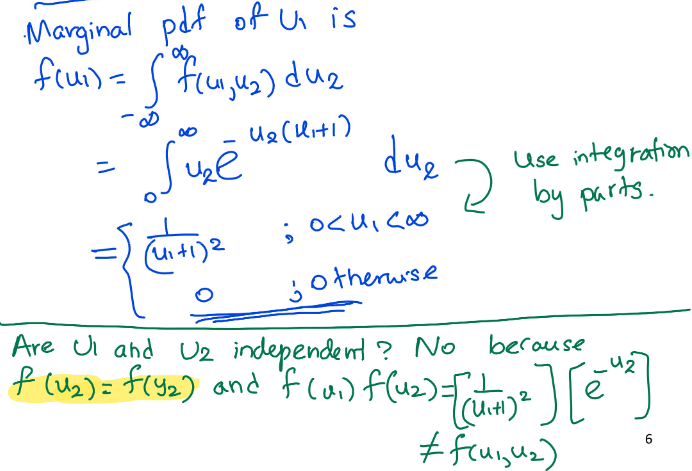 Marginal pdf of U₁ is
f(u₁) = ∫_{-∞}^{∞} f(u₁,u₂) du₂
= ∫_{0}^{∞} u₂ e^{-u₂(u₁+1)} du₂
use integration
by parts.
= { 1/(u₁+1)² ; 0<u₁<∞
0 ; otherwise
Are U₁ and U₂ independent? No because
f(u₂) = f(y₂) and f(u₁) f(u₂) = [1/(u₁+1)²] [e^{-u₂}]
≠ f(u₁,u₂)
6